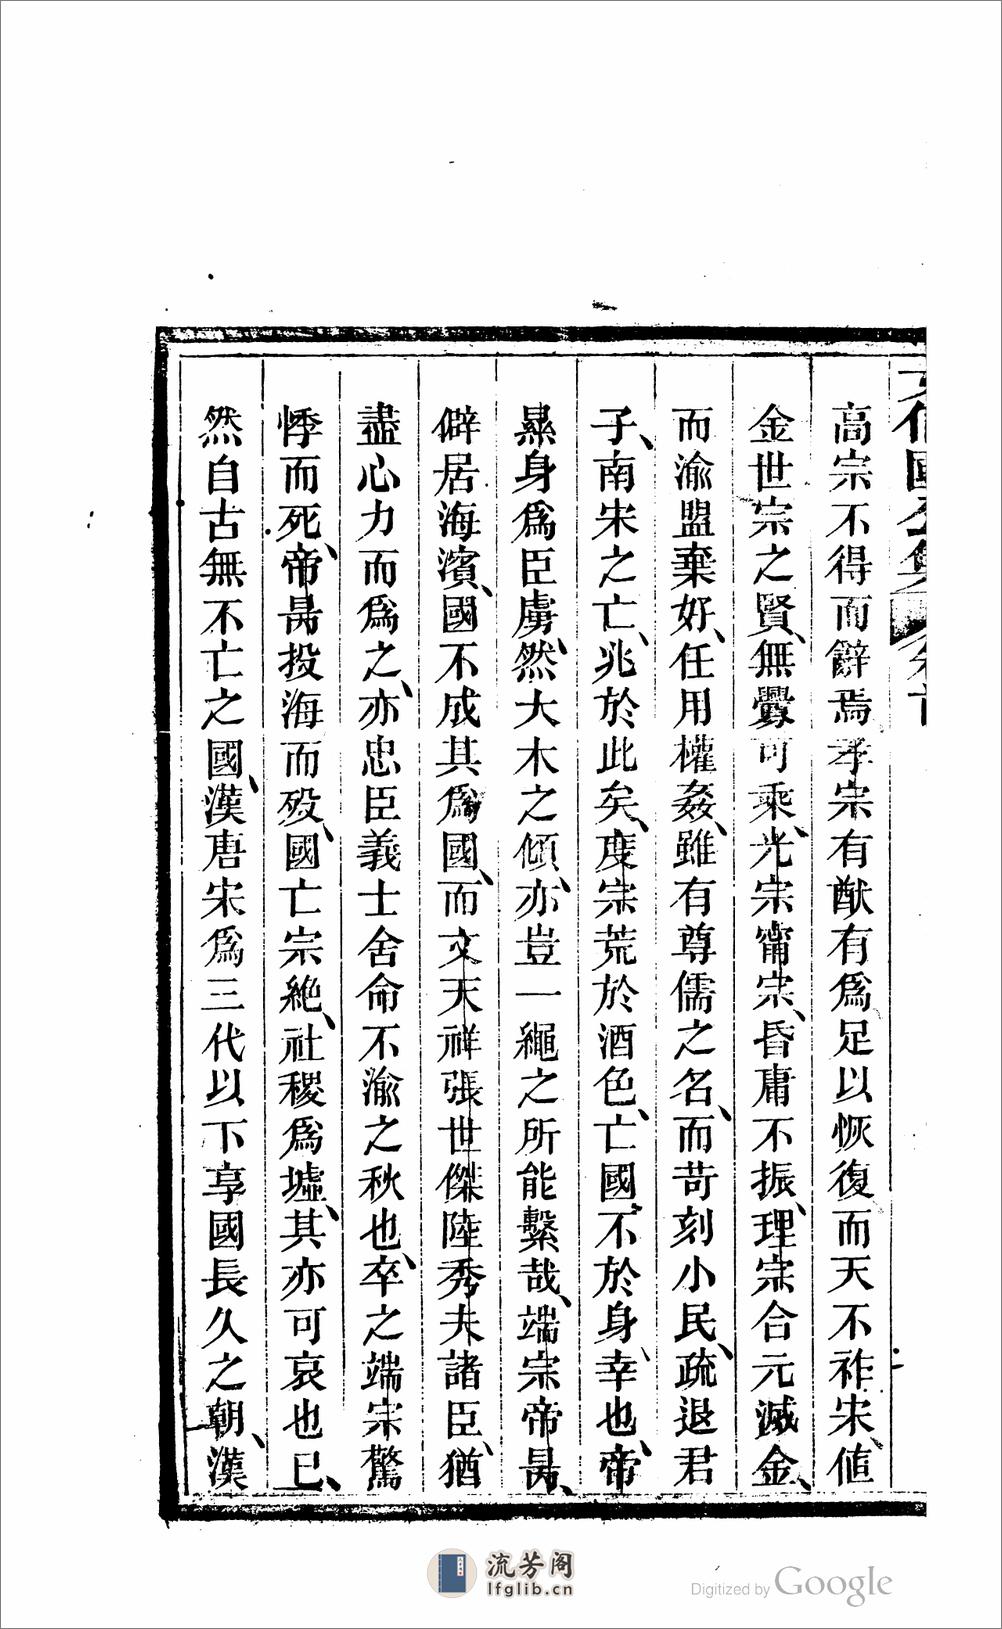 文信國公集 卷首
高宗不得而辭焉孝宗有猷有爲足以恢復而天不祚宋、值
金世宗之賢、無釁可乘、光宗甯宗、昏庸不振、理宗合元滅金、
而渝盟棄好、任用權姦、雖有尊儒之名、而苛刻小民、疏退君
子、南宋之亡、兆於此矣、度宗荒於酒色、亡國不於身、幸也、帝
㬎身爲臣虜、然大木之傾、亦豈一繩之所能繫哉、端宗帝昺、
僻居海濱、國不成其爲國、而文天祥張世傑陸秀夫諸臣、猶
盡心力而爲之、亦忠臣義士舍命不渝之秋也、卒之端宗驚
悸而死、帝昺投海而歿、國亡宗絶、社稷爲墟、其亦可哀也已、
然自古無不亡之國、漢唐宋爲三代以下享國長久之朝、漢
流芳阁
lfglib.cn
Digitized by Google